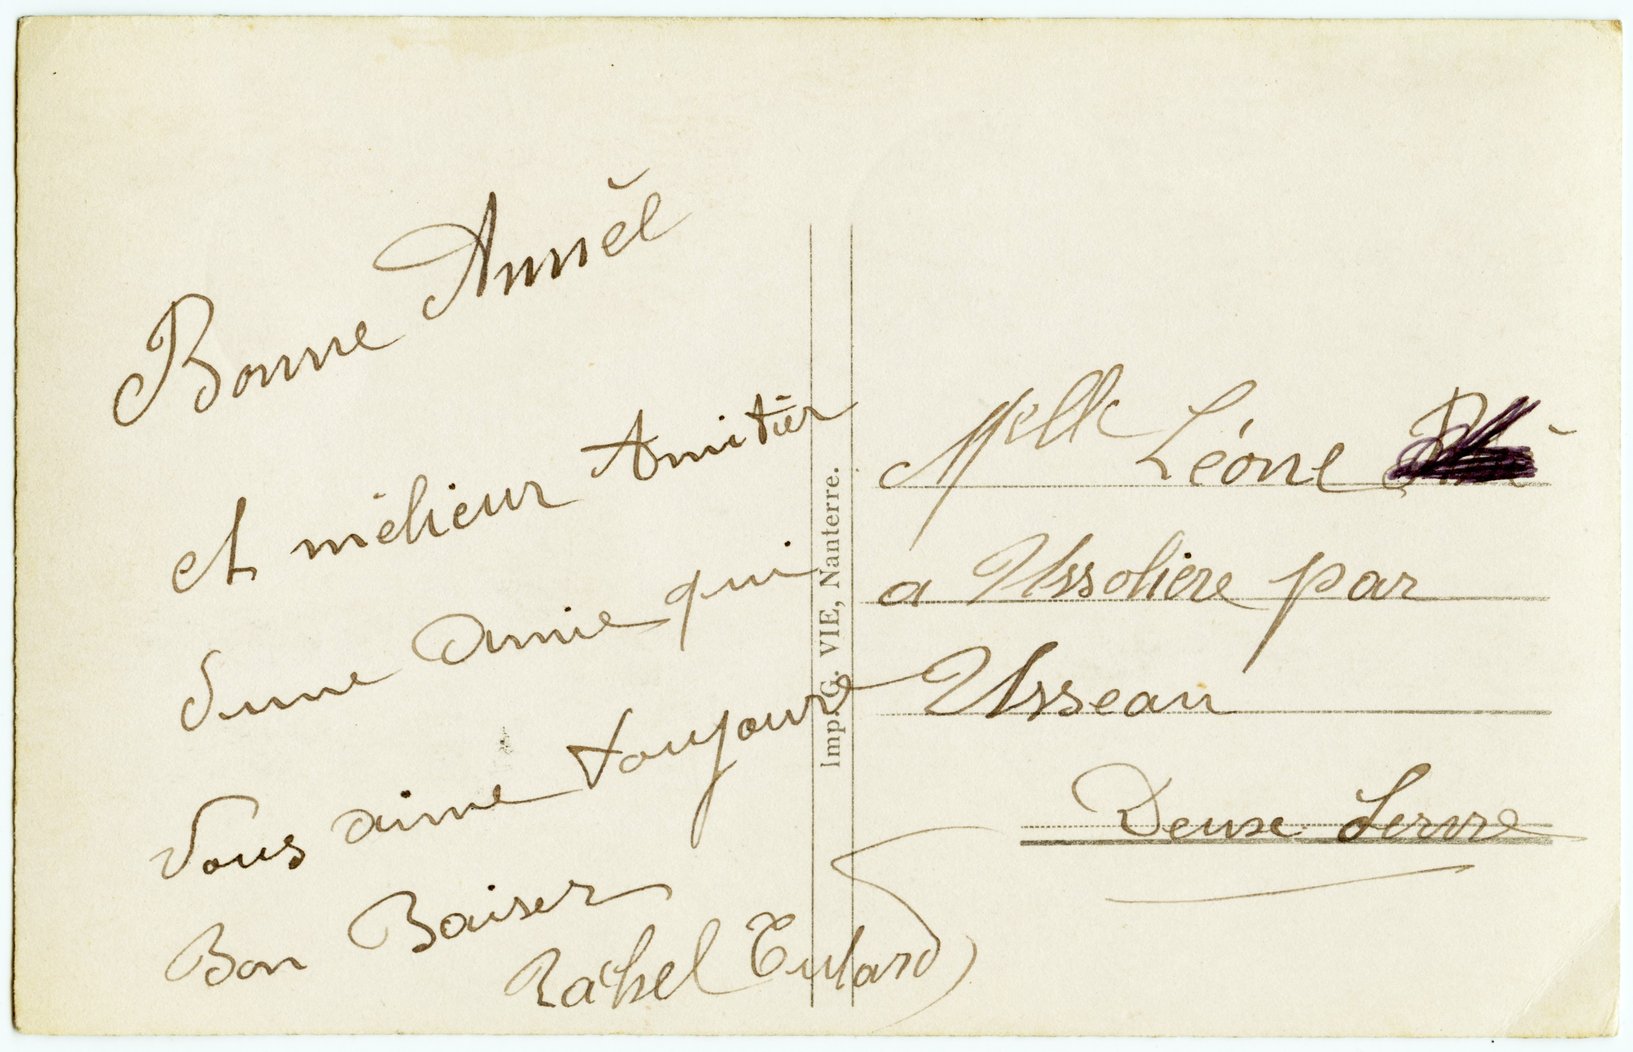 Bonne Annèl
et mèlieur Amitièr
d'une amie qui
vous aime toujoure
Bon Baiser
Rachel Tulard
Imp. G. VIE, Nanterre.
Melle Léone
a Ussolière par
Usseau
Deuxe Servre